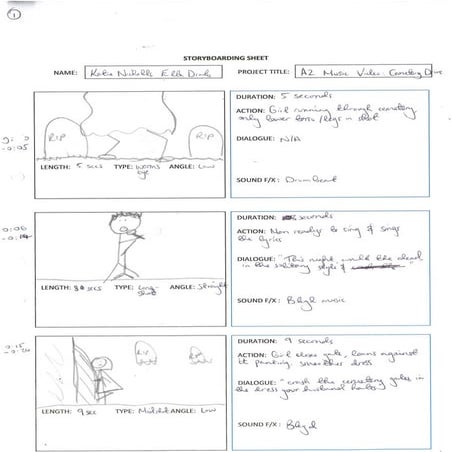 1
STORYBOARDING SHEET
NAME: Katie Nicholls Ella Dinds
PROJECT TITLE: A2 Music Video: Cemetery Drive
DURATION: 5 seconds
ACTION: Girl running through cemetery,
only lower torso/legs in shot
DIALOGUE: N/A
SOUND F/X: Drumbeat
RIP
RIP
- 0:05
LENGTH: 5 secs TYPE: worms eye ANGLE: Low
0:06
DURATION: seconds
ACTION: Man readies to sing & sings
the lyrics
DIALOGUE: "This night, walk the dead
in the solitary style &
SOUND F/X: Bkgd music
LENGTH: 8 secs TYPE: Long-Shot ANGLE: Straight
0:15
- 0:24
RIP
RIP
DURATION: 9 seconds
ACTION: Girl closes gate, leans against
it panting, smoothes dress
DIALOGUE: "crash the cemetery gates in
the dress your husband hates"
SOUND F/X: Bkgd
LENGTH: 9 sec TYPE: Midshot ANGLE: Low